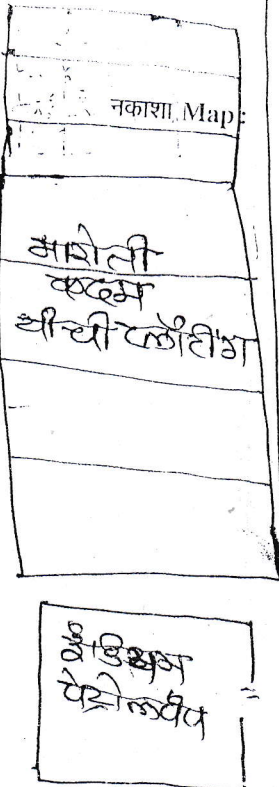 नकाशा Map:
मारोती
कदम
यांची प्लॉटींग
इंडियन
पेट्रोलपंप